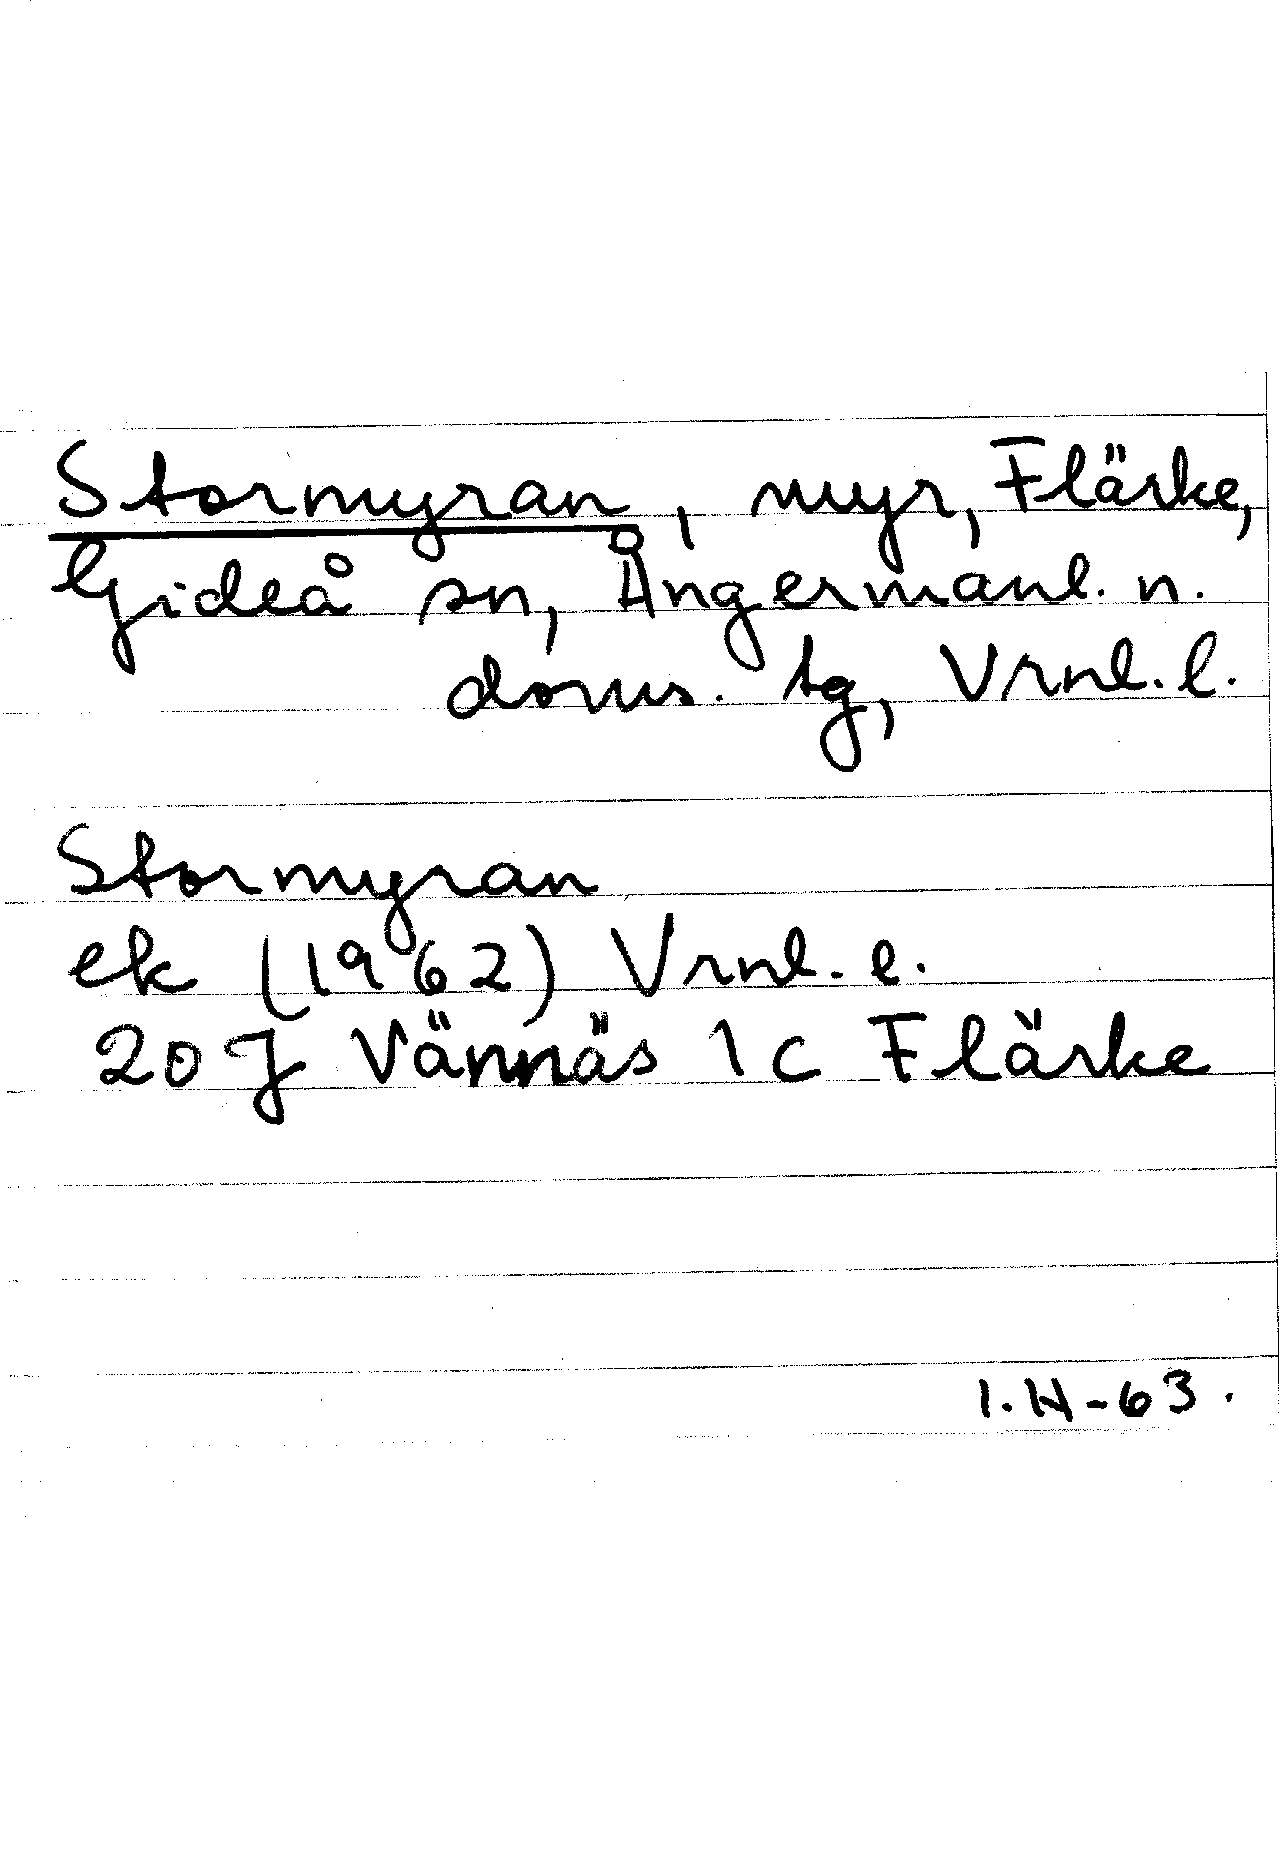 Stormyran, myr, Flärke,
Gideå sn, Ångermanl. n.
doms. tg, Vrnl. l.
Stormyran
ek (1962) Vrnl. l.
20 J Vännäs 1 c Flärke
I.H-63.